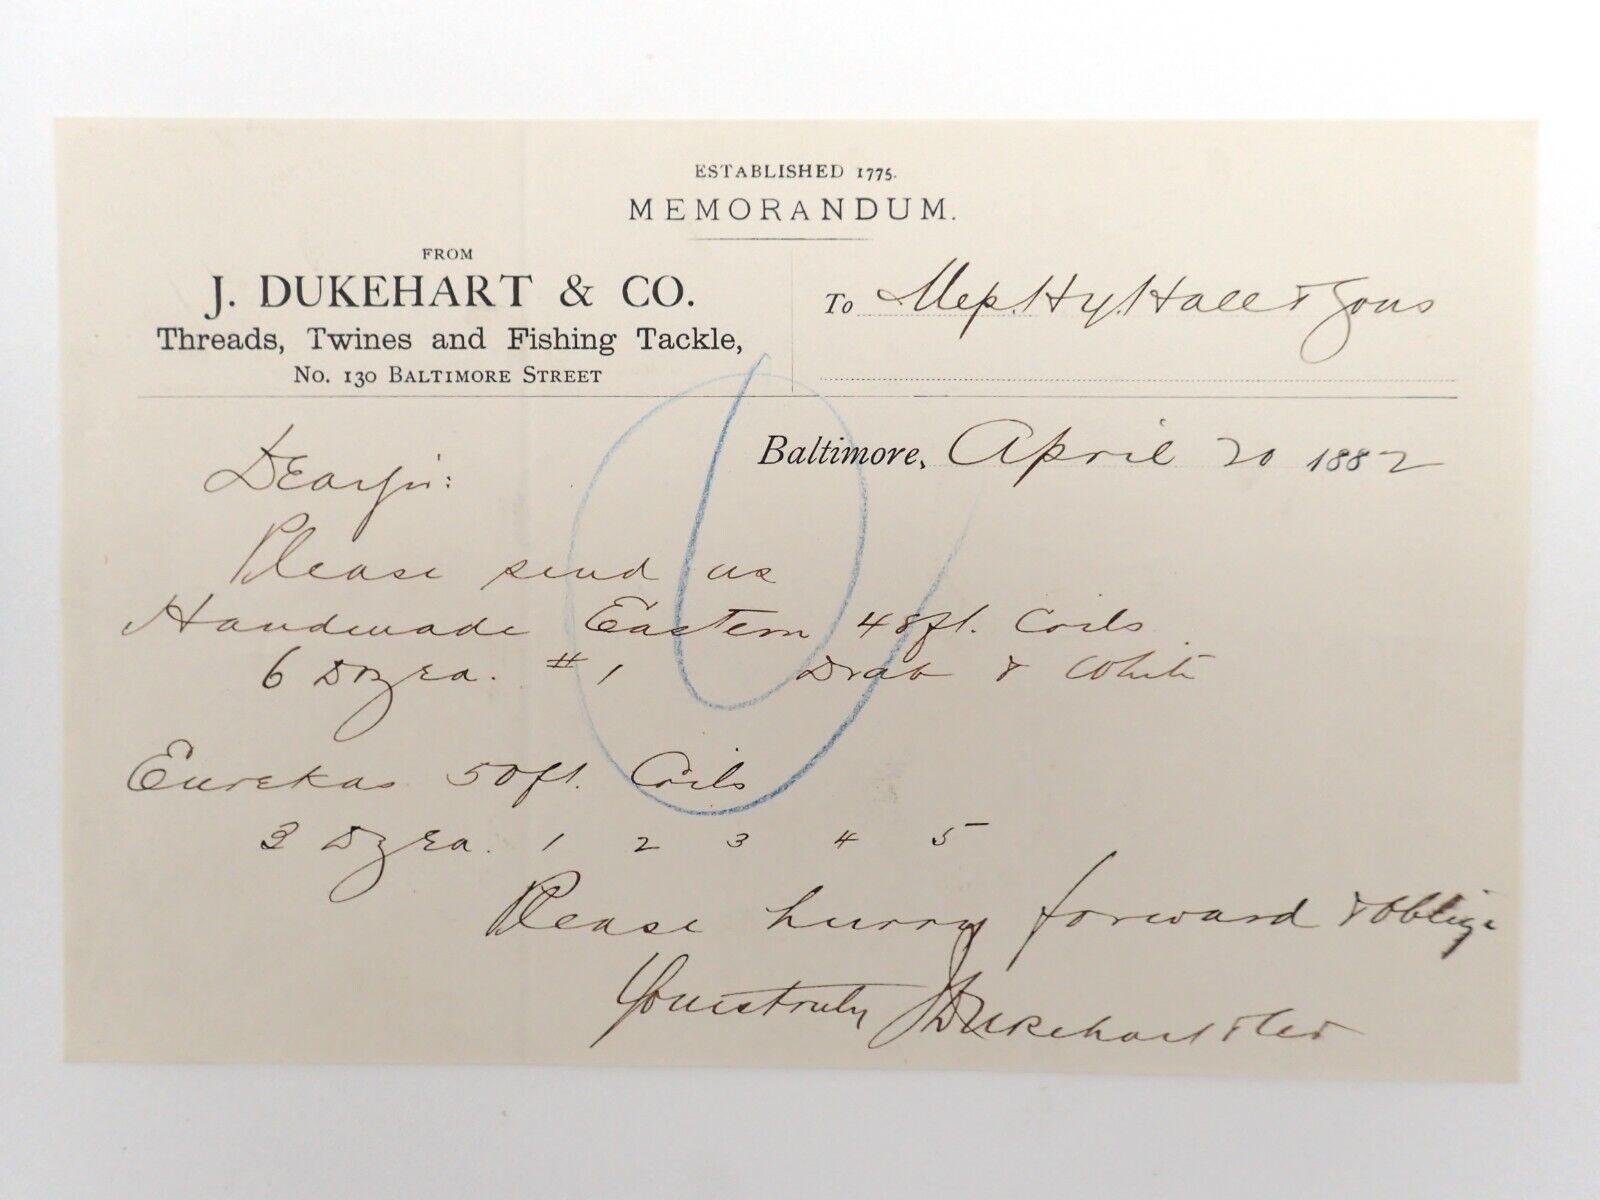 ESTABLISHED 1775.
MEMORANDUM.
FROM
J. DUKEHART & CO.
Threads, Twines and Fishing Tackle,
No. 130 BALTIMORE STREET
To Mess. Hy. Hall & Sons
Baltimore, April 20 1882
Dear Sir:
Please send us
Handmade Eastern 48 ft. Coils
6 Doz Ea. #1 Drab & White
Eurekas 50 ft. Coils
3 Dz Ea. 1 2 3 4 5
Please hurry forward & oblige
Yours truly J Dukehart & Co